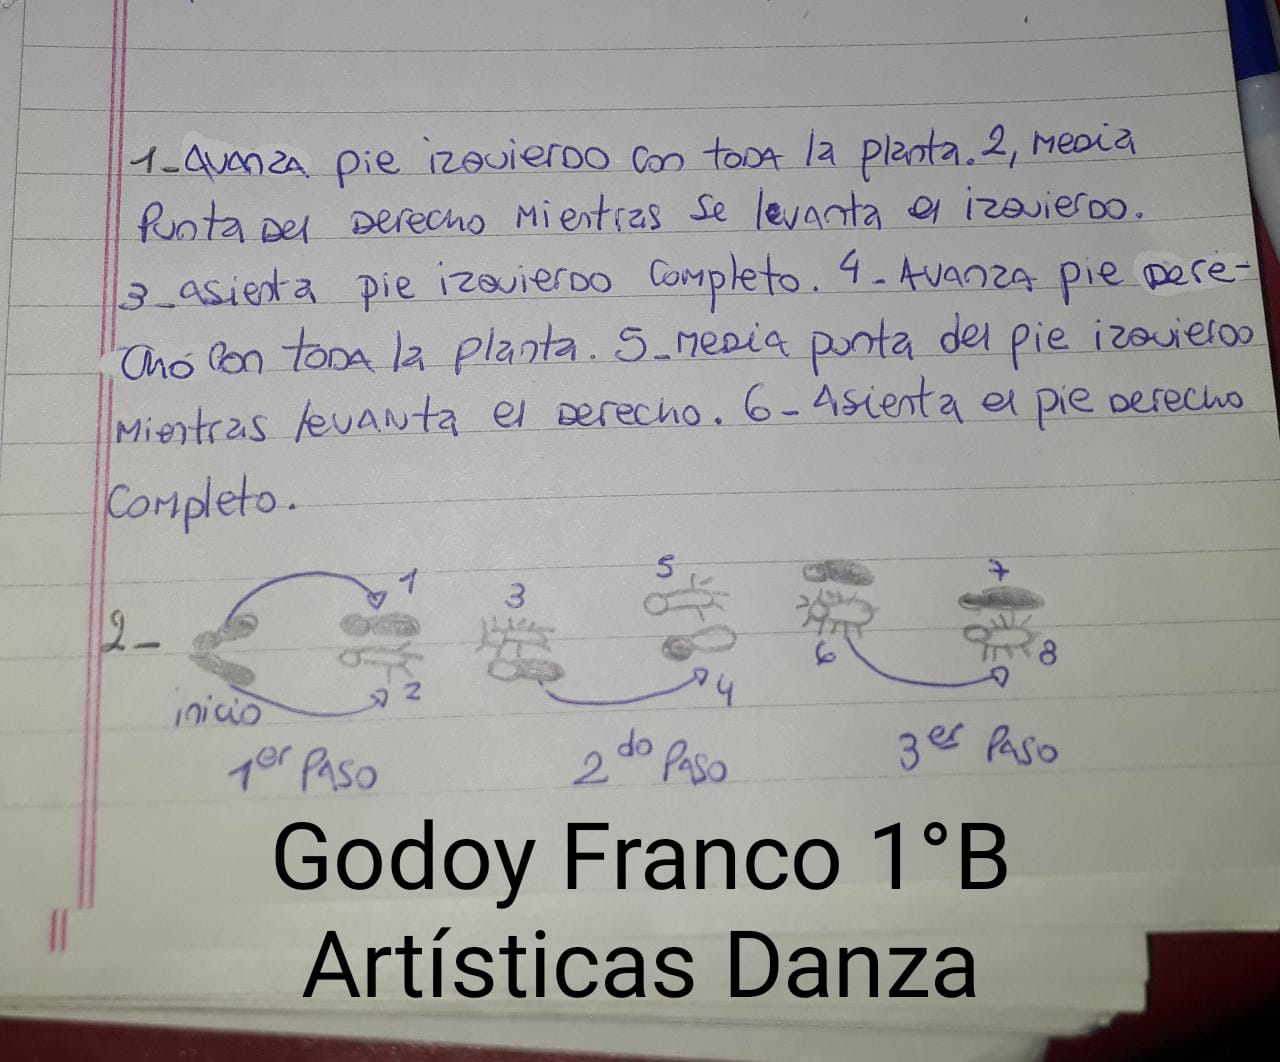 1- Avanza pie izquierdo con toda la planta. 2, media
Punta del derecho mientras se levanta el izquierdo.
3- asienta pie izquierdo completo. 4- Avanza pie dere-
cho con toda la planta. 5- media punta del pie izquierdo
mientras levanta el derecho. 6- Asienta el pie derecho
completo.
1 3 5 7
2-
2 4 6 8
inicio
1er PASO 2do PASO 3er PASO
Godoy Franco 1°B
Artísticas Danza